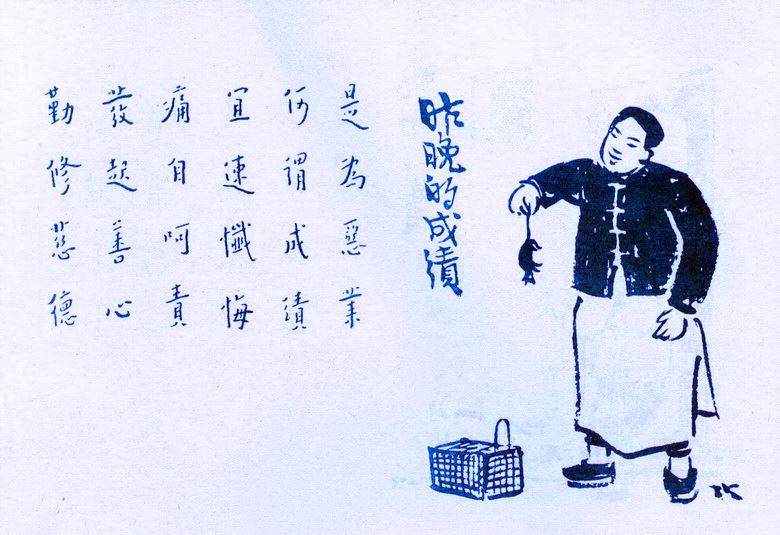 昨晚的成績
是為惡業
何謂成績
宜速懺悔
痛自呵責
發起善心
勤修慈德
TK